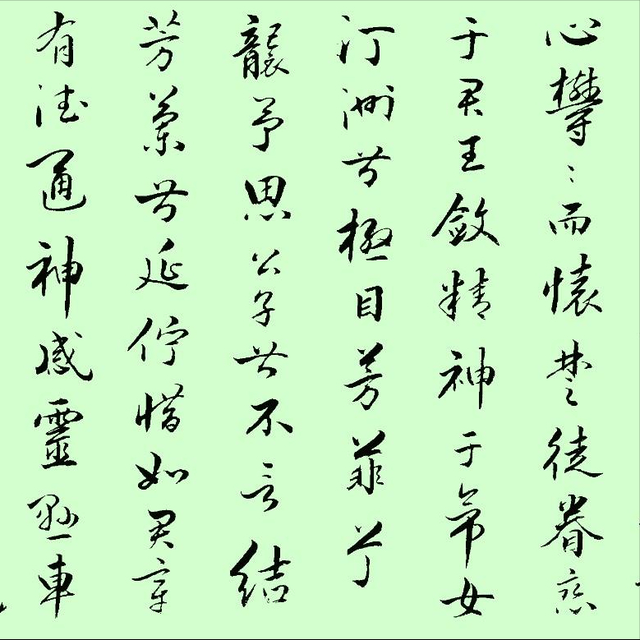 心鬱〻而懷楚徒眷戀
于君王斂精神于帝女
汀洲兮極目芳菲兮
襲予思公子兮不言結
芳蘭兮延佇惜如君章
有德通神感靈懸車